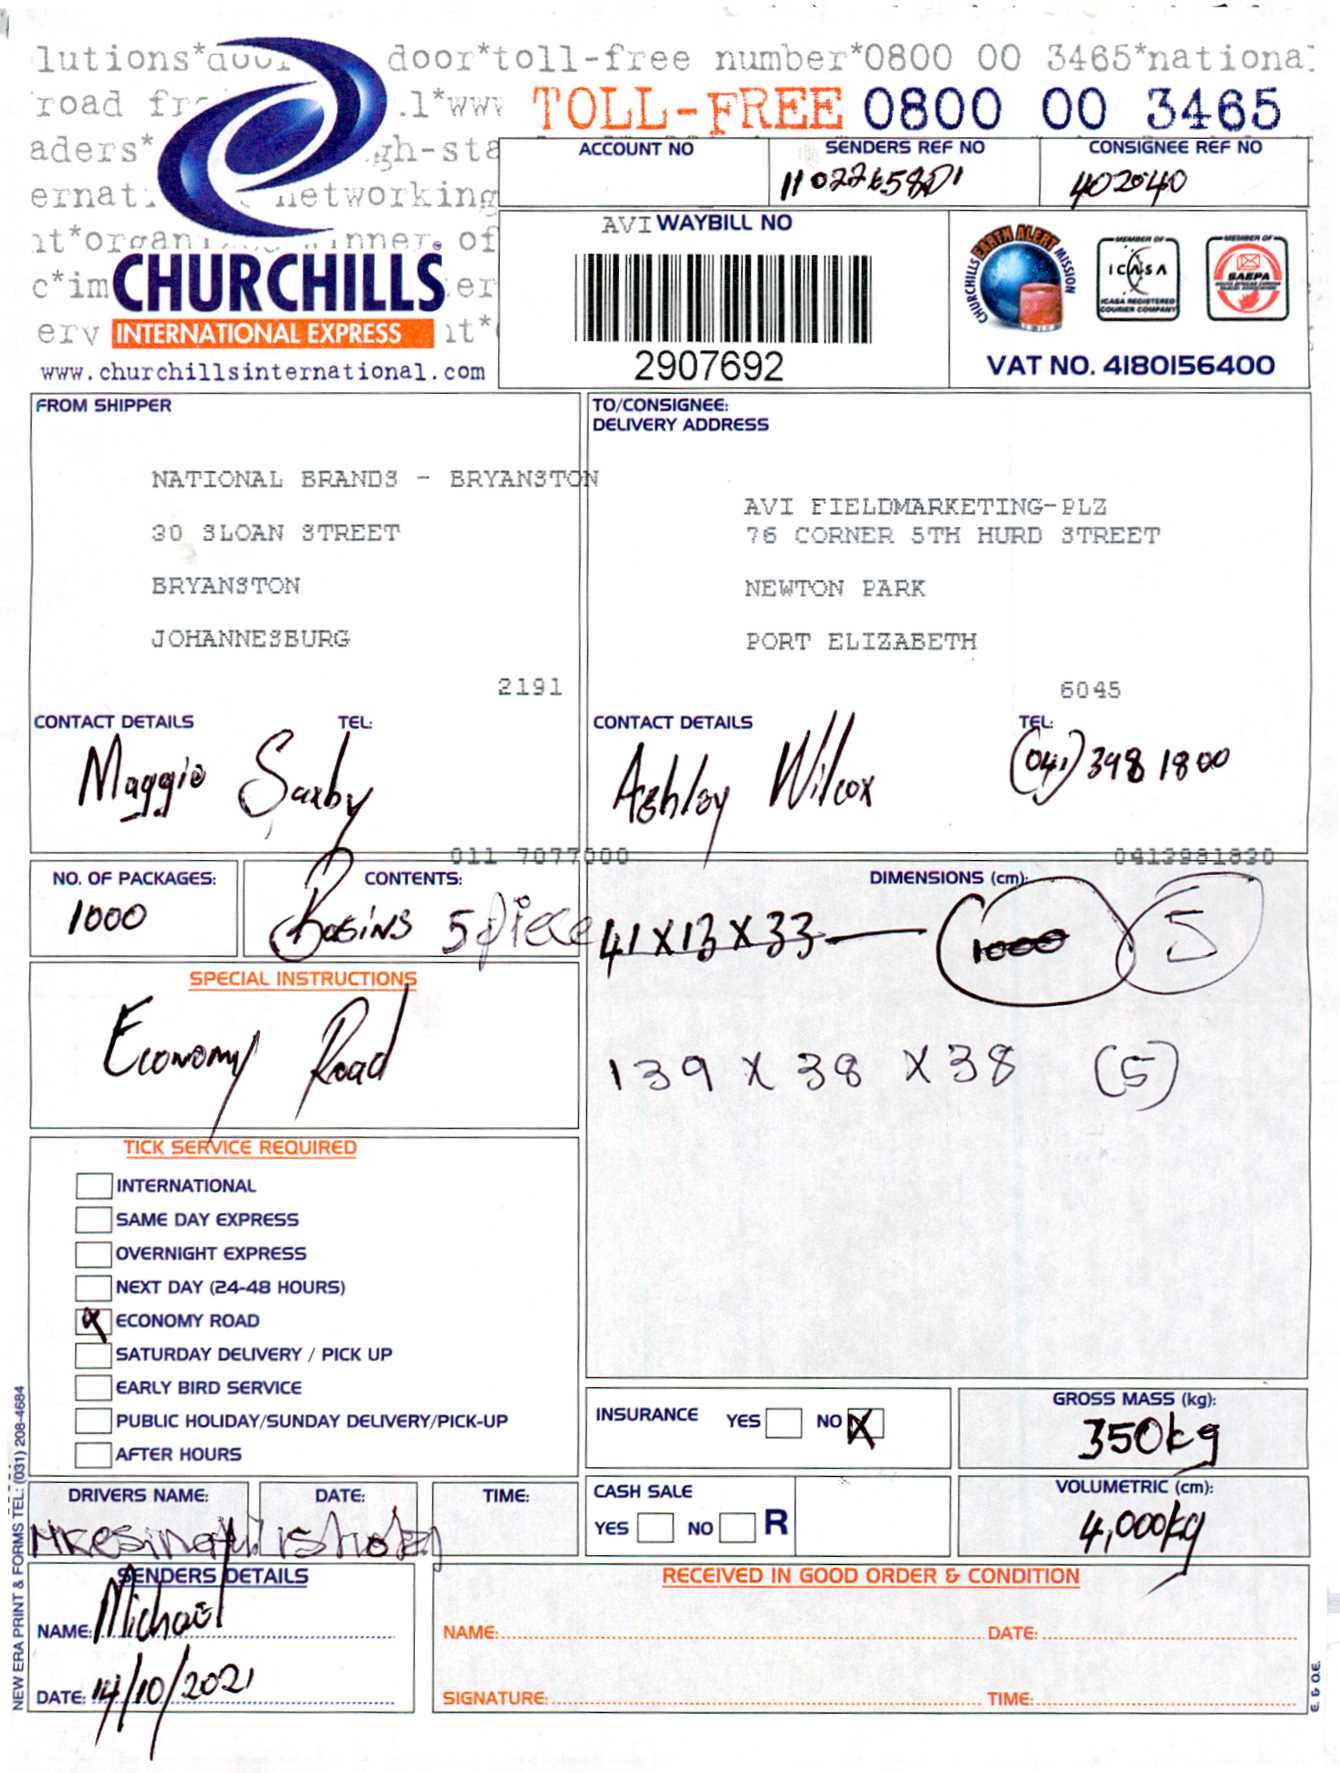 lutions*door door*toll-free number*0800 00 3465*nationa
road fr .l*www
TOLL-FREE 0800 00 3465
aders* gh-sta
ACCOUNT NO
SENDERS REF NO
CONSIGNEE REF NO
402040
ernat networking
AVI WAYBILL NO
nt*organ winner of
c*im er
CHURCHILLS
erv nt*
INTERNATIONAL EXPRESS
www.churchillsinternational.com
2907692
CHURCHILLS EARTH ALERT MISSION
MEMBER OF
ICASA
ICASA REGISTERED
COURIER COMPANY
MEMBER OF
SAEPA
VAT NO. 4180156400
FROM SHIPPER
NATIONAL BRANDS - BRYANSTON
30 SLOAN STREET
BRYANSTON
JOHANNESBURG
2191
CONTACT DETAILS TEL:
Maggie Saxby
011 7077000
TO/CONSIGNEE:
DELIVERY ADDRESS
AVI FIELDMARKETING-PLZ
76 CORNER 5TH HURD STREET
NEWTON PARK
PORT ELIZABETH
6045
CONTACT DETAILS TEL:
Ashley Wilcox (041) 398 1800
0413981830
NO. OF PACKAGES:
1000
CONTENTS:
5 piece
DIMENSIONS (cm):
41 x 13 x 33 — 1000 5
139 x 38 x 38 (5)
SPECIAL INSTRUCTIONS
Economy Road
TICK SERVICE REQUIRED
INTERNATIONAL
SAME DAY EXPRESS
OVERNIGHT EXPRESS
NEXT DAY (24-48 HOURS)
X ECONOMY ROAD
SATURDAY DELIVERY / PICK UP
EARLY BIRD SERVICE
PUBLIC HOLIDAY/SUNDAY DELIVERY/PICK-UP
AFTER HOURS
INSURANCE YES NO X
GROSS MASS (kg):
350kg
CASH SALE
YES NO R
VOLUMETRIC (cm):
4,000kg
DRIVERS NAME: DATE: TIME:
SENDERS DETAILS
NAME: Michael
DATE: 14/10/2021
RECEIVED IN GOOD ORDER & CONDITION
NAME: DATE:
SIGNATURE: TIME:
NEW ERA PRINT & FORMS TEL: (031) 208-4684
E. & O.E.